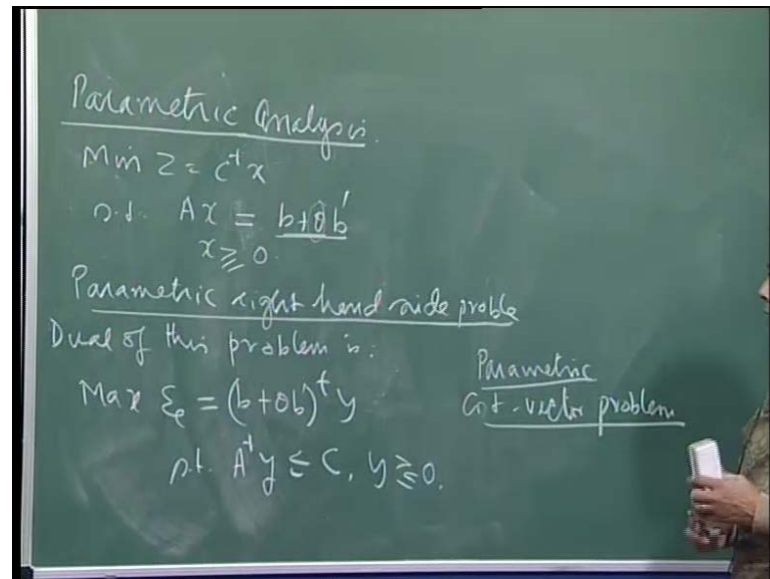 Parametric Analysis.
Min Z = cᵗx
s.t. Ax = b+θb'
x ≥ 0.
Parametric right hand side proble
Dual of this problem is:
Max ξ = (b+θb)ᵗ y
s.t. Aᵗy ≤ C, y ≥ 0.
Parametric
Cost-vector problem